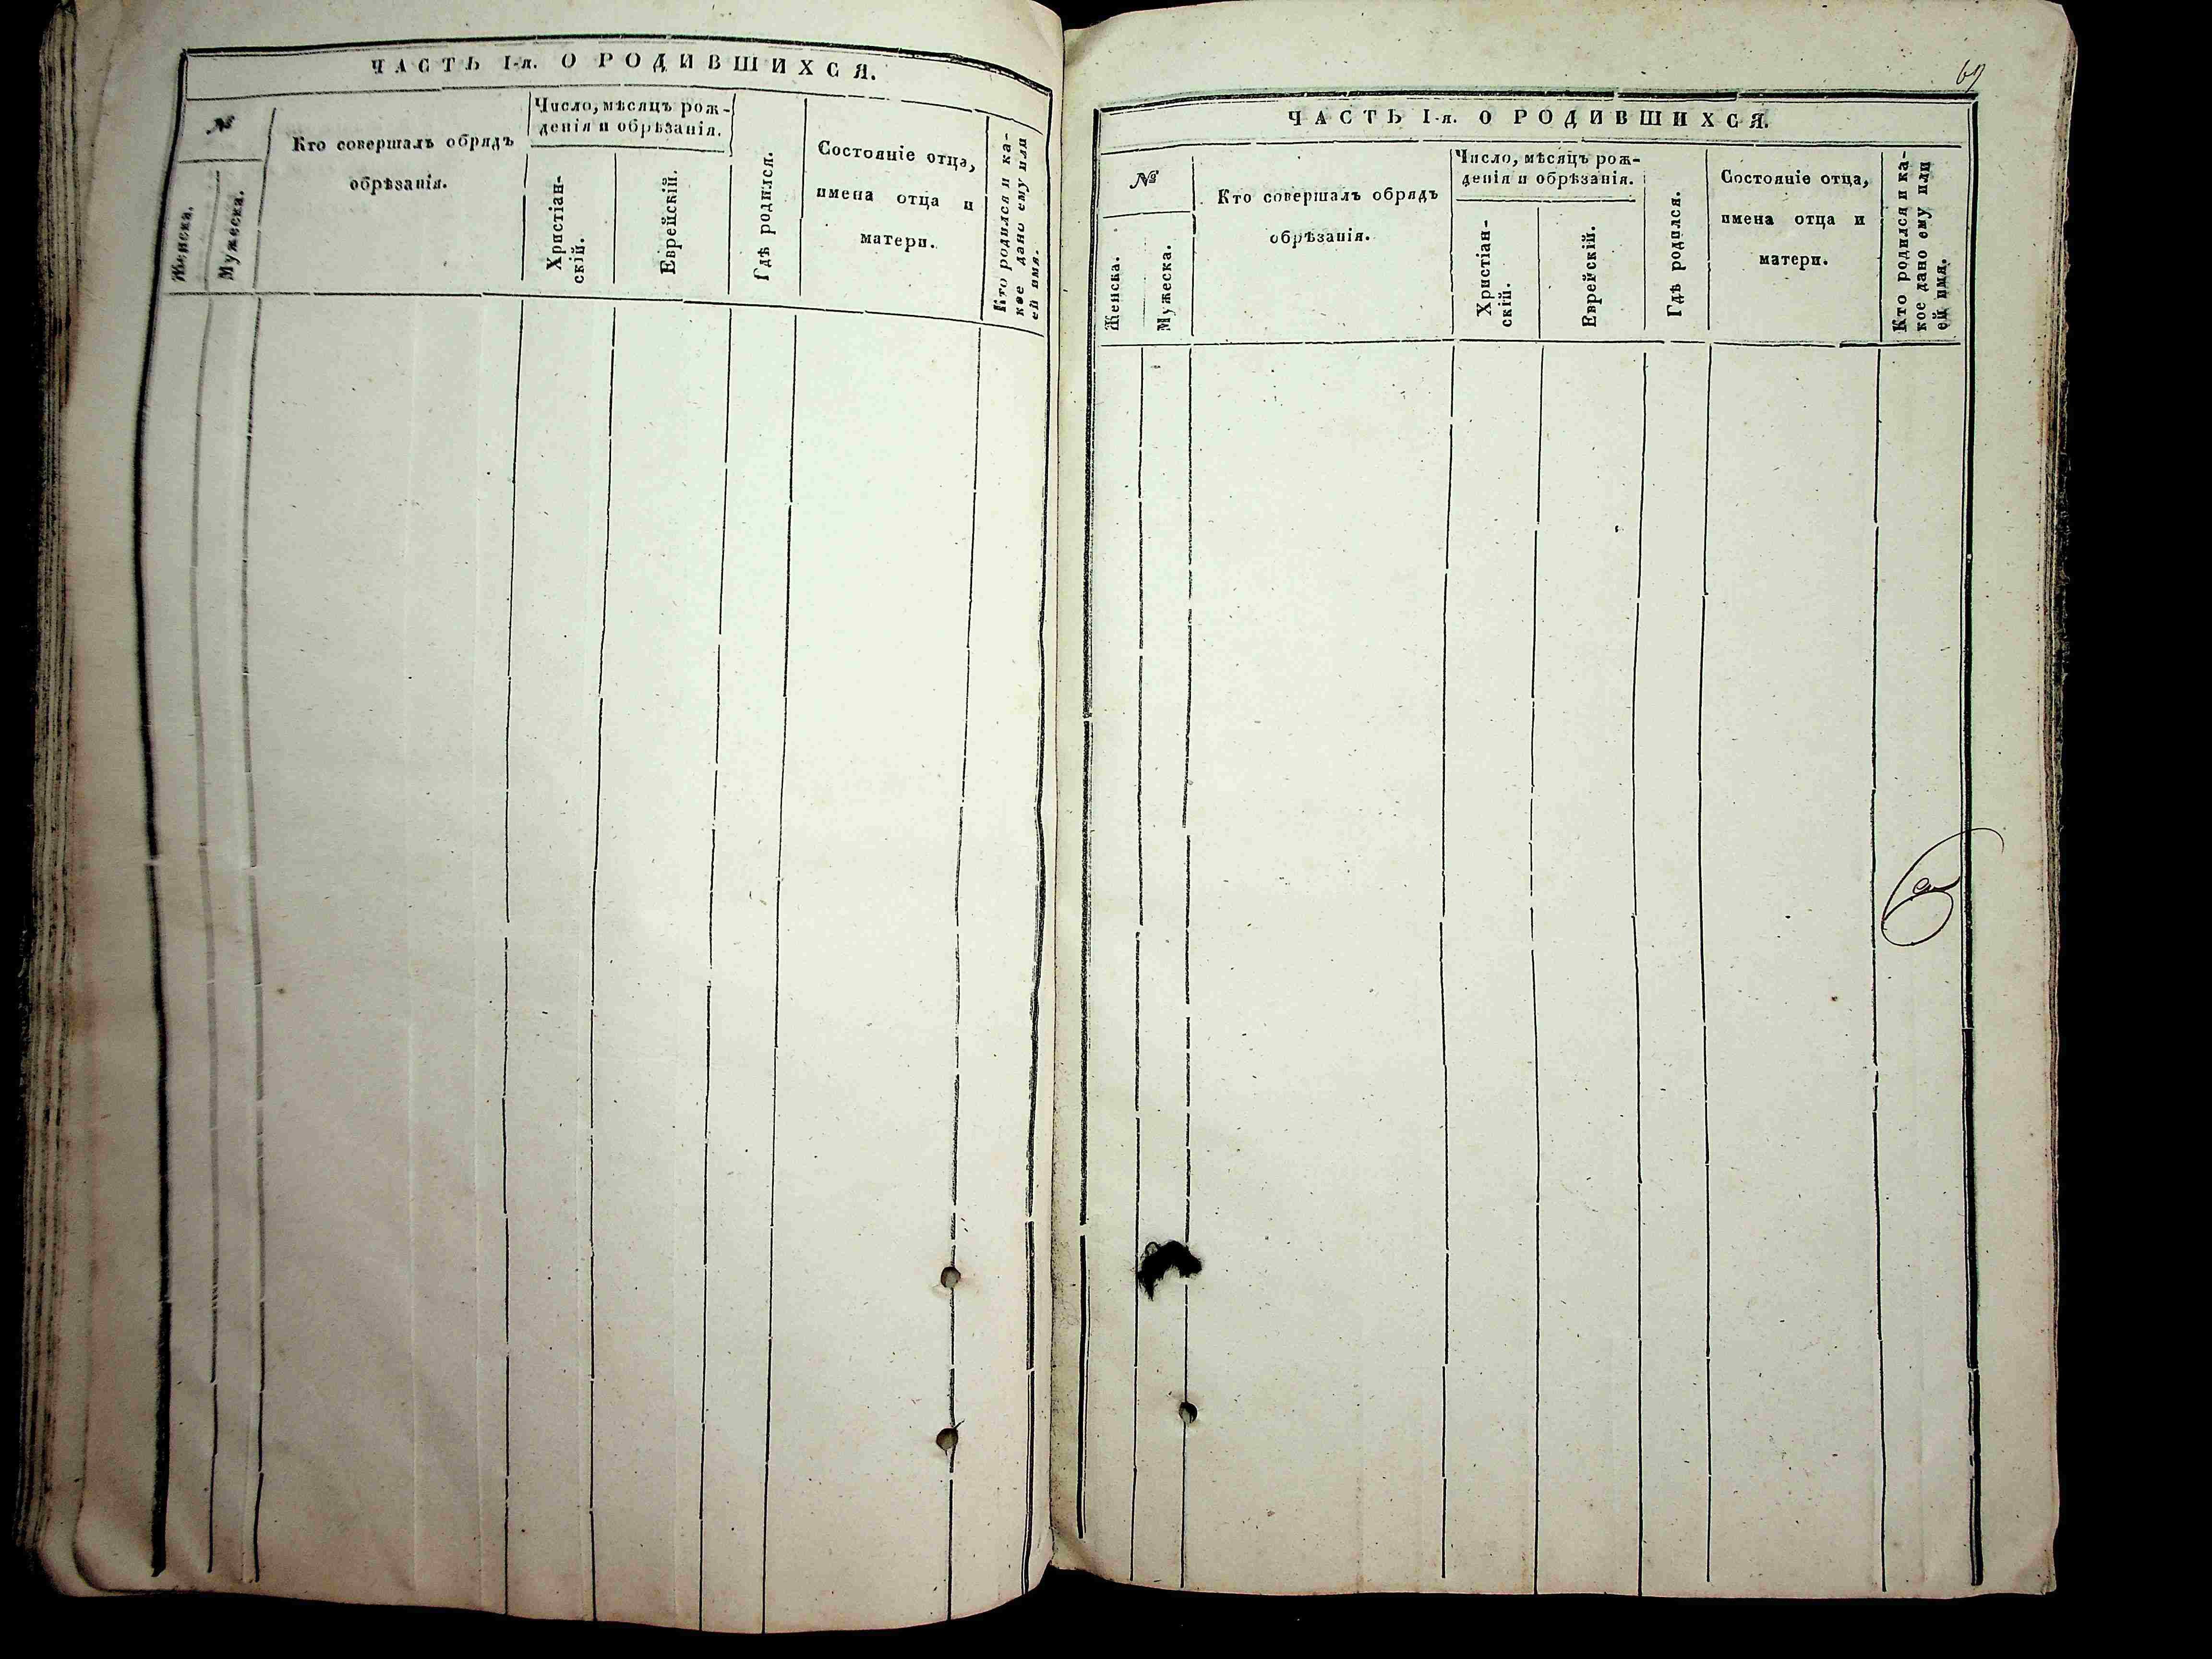 ЧАСТЬ I-я. О РОДИВШИХСЯ.
№
Женска.
Мужеска.
Кто совершалъ обрядъ
обрѣзанія.
Число, мѣсяцъ рож-
денія и обрѣзанія.
Христіан-
скій.
Еврейскій.
Гдѣ родился.
Состояніе отца,
имена отца и
матери.
Кто родился и ка-
кое дано ему или
ей имя.
69
ЧАСТЬ I-я. О РОДИВШИХСЯ.
№
Женска.
Мужеска.
Кто совершалъ обрядъ
обрѣзанія.
Число, мѣсяцъ рож-
денія и обрѣзанія.
Христіан-
скій.
Еврейскій.
Гдѣ родился.
Состояніе отца,
имена отца и
матери.
Кто родился и ка-
кое дано ему или
ей имя.